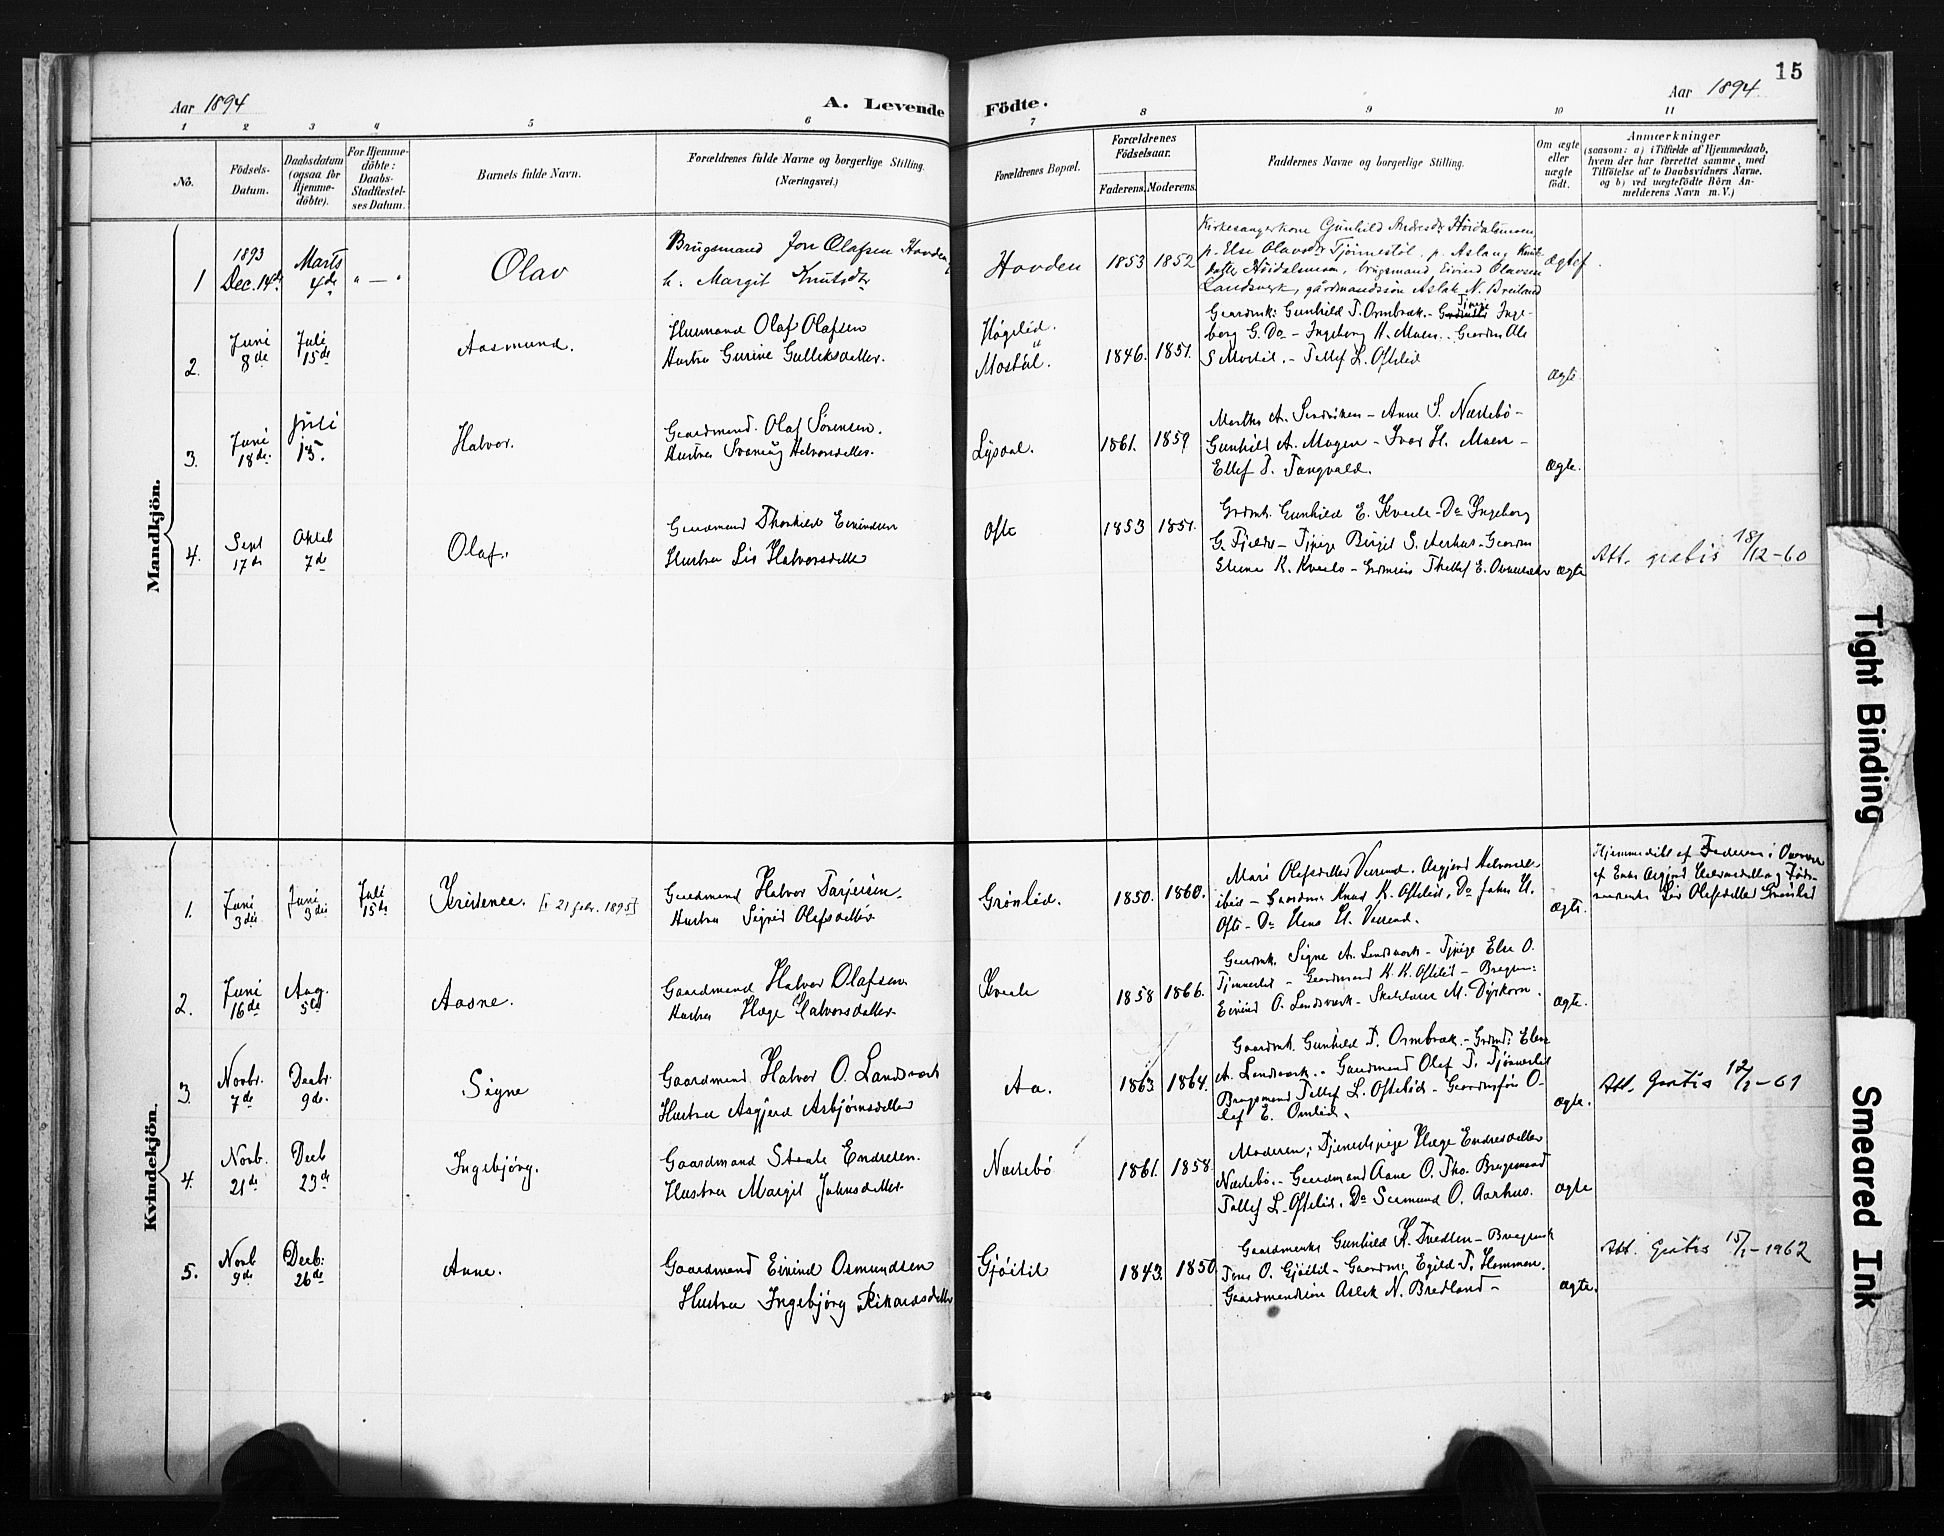 15
Aar 1894
A. Levende Födte.
Aar 1894
1 2 3 4 5 6 7 8 9 10 11
No.
Födsels-Datum.
Daabsdatum (ogsaa for Hjemme-döbte).
For Hjemme-döbte: Daabs-Stadfæstelses Datum.
Barnets fulde Navn.
Forældrenes fulde Navne og borgerlige Stilling.
(Næringsvei.)
Forældrenes Bopæl.
Forældrenes Födselsaar.
Faderens. Moderens.
Faddernes Navne og borgerlige Stilling.
Om ægte eller uægte födt.
Anmærkninger
(saasom: a) i Tilfælde af Hjemmedaab,
hvem der har forrettet samme, med
Tilföielse af to Daabsvidners Navne,
og b) ved uægtefödte Börn An-
melderens Navn m. V.)
Mandkjön.
1 1893 Dec. 14de Marts 4de " — "
Olav
Brugsmand Jon Olafsen Hovden
h. Margit Knutsdtr
Hovden 1853 1852
Kirkesangerkone Gunhild Høidalsmoen,
p. Else Olavsdtr Tjönnestöl. p. Aslaug Knuts-
datter Höidalsmoen, brugsmand Eivind Olavsen
Landsverk, gårdmandssøn Aslak N. Breiland
ægtef.
2. Juni 8de Juli 15de
Aasmund.
Husmand Olaf Olafsen
Hustru Gurine Gulleksdatter.
Høgelid.
Mostöl. 1846. 1851.
Gaardmk: Gunhild T. Ormbræk. - Tjpige Inge-
borg G. Do - Ingeborg H. Moen. - Gaardm Ole
S Mostöl. - Tellef L. Ofteliд
ægte
3. Juni 18de. Juli 15.
Halvor.
Gaardmand. Olaf Sörensen.
Hustru Svanaug Halvorsdatter.
Lysdal. 1861. 1859
Anne S. Næsebö -
Gunhild A. Mogen - Ivar H. Moen -
Ellef T. Tangvald.
ægte.
4. Sept 17de Oktob 7de
Olaf.
Gaardmand Thorkild Eivindsen
Hustru Liv Halvorsdatter
Ofte 1853 1851.
Grdmk. Gunhild E. Kveste - Do Ingeborg
G. Fjeldet - Tjpige Birgit S. Aarhus - Gaardm
ægte
Att. gratis 18/12-60
Kvindekjön.
1. Juni 3die Juni 3die Juli 15de
Kristence. [† 21 febr. 1895]
Gaardmand Halvor Tarjeisen.
Hustru Signid Olafsdatter
Grönlid. 1850. 1860.
Mari Olafsdatter Vesund. Asgjerd Halvorsdtr
Knut K. Oftelid, Do John H.
Ofte - Do Hans H. Vesund.
ægte.
Hjemmedöbt af Faderen i Overvær
af Enke Asgjerd Halvorsdatter og Jord-
moder Liv Olafsdatter Grönlid
2. Juni 16de Aug. 5te
Aasne.
Gaardmand Halvor Olafsen
Hustru Hæge Halvorsdatter
Kveste 1858 1866.
Gaardmk. Signe A. Landsverk - Tjpige Else O.
Gaardmand K. K. Oftelid - Brugsm:
Eivind O. Landsverk - M. Dyrkorn.
ægte.
3 Novbr. 7de Decbr. 9de.
Signe
Gaardmand Halvor O. Landsverk
Hustru Asgjerd Asbjörnsdatter
Aa. 1863 1864.
Gaardmk. Gunhild T. Ormbræk. - Grdmk: Else
A. Landsverk. - Gaardmand Olef T. Tjönnestöl
Brugsmand Tellef L. Oftelid - Gaardmssön O-
lef E. Omlid.
ægte.
Att. Gratis 12/1-61
4. Novb. 21de Decb 23de
Ingebjörg.
Gaardmand Staale Endresen.
Hustru Margit Johnsdatter
Næsebö 1861. 1858.
Moderen; Tjenestepige Hæge Endresdatter
Næsebö. - Gaardmand Aane O. Tho. Brugsmand
Tellef L. Oftelid. Do Seemund O. Aarhus.
ægte
5. Novb 9de Decb: 26de
Anne.
Gaardmand Eivind Osmundsen
Hustru Ingebjörg Rikardsdatter
Gjöitil 1843. 1850
Gaardmands Gunhild
Tone O. Gjöitil - Gaardm: Egild T. Hommen.
Gaardmandssön Aslak N. Bredland -
ægte.
Att. Gratis 15/1-1962
Tight Binding
Smeared Ink